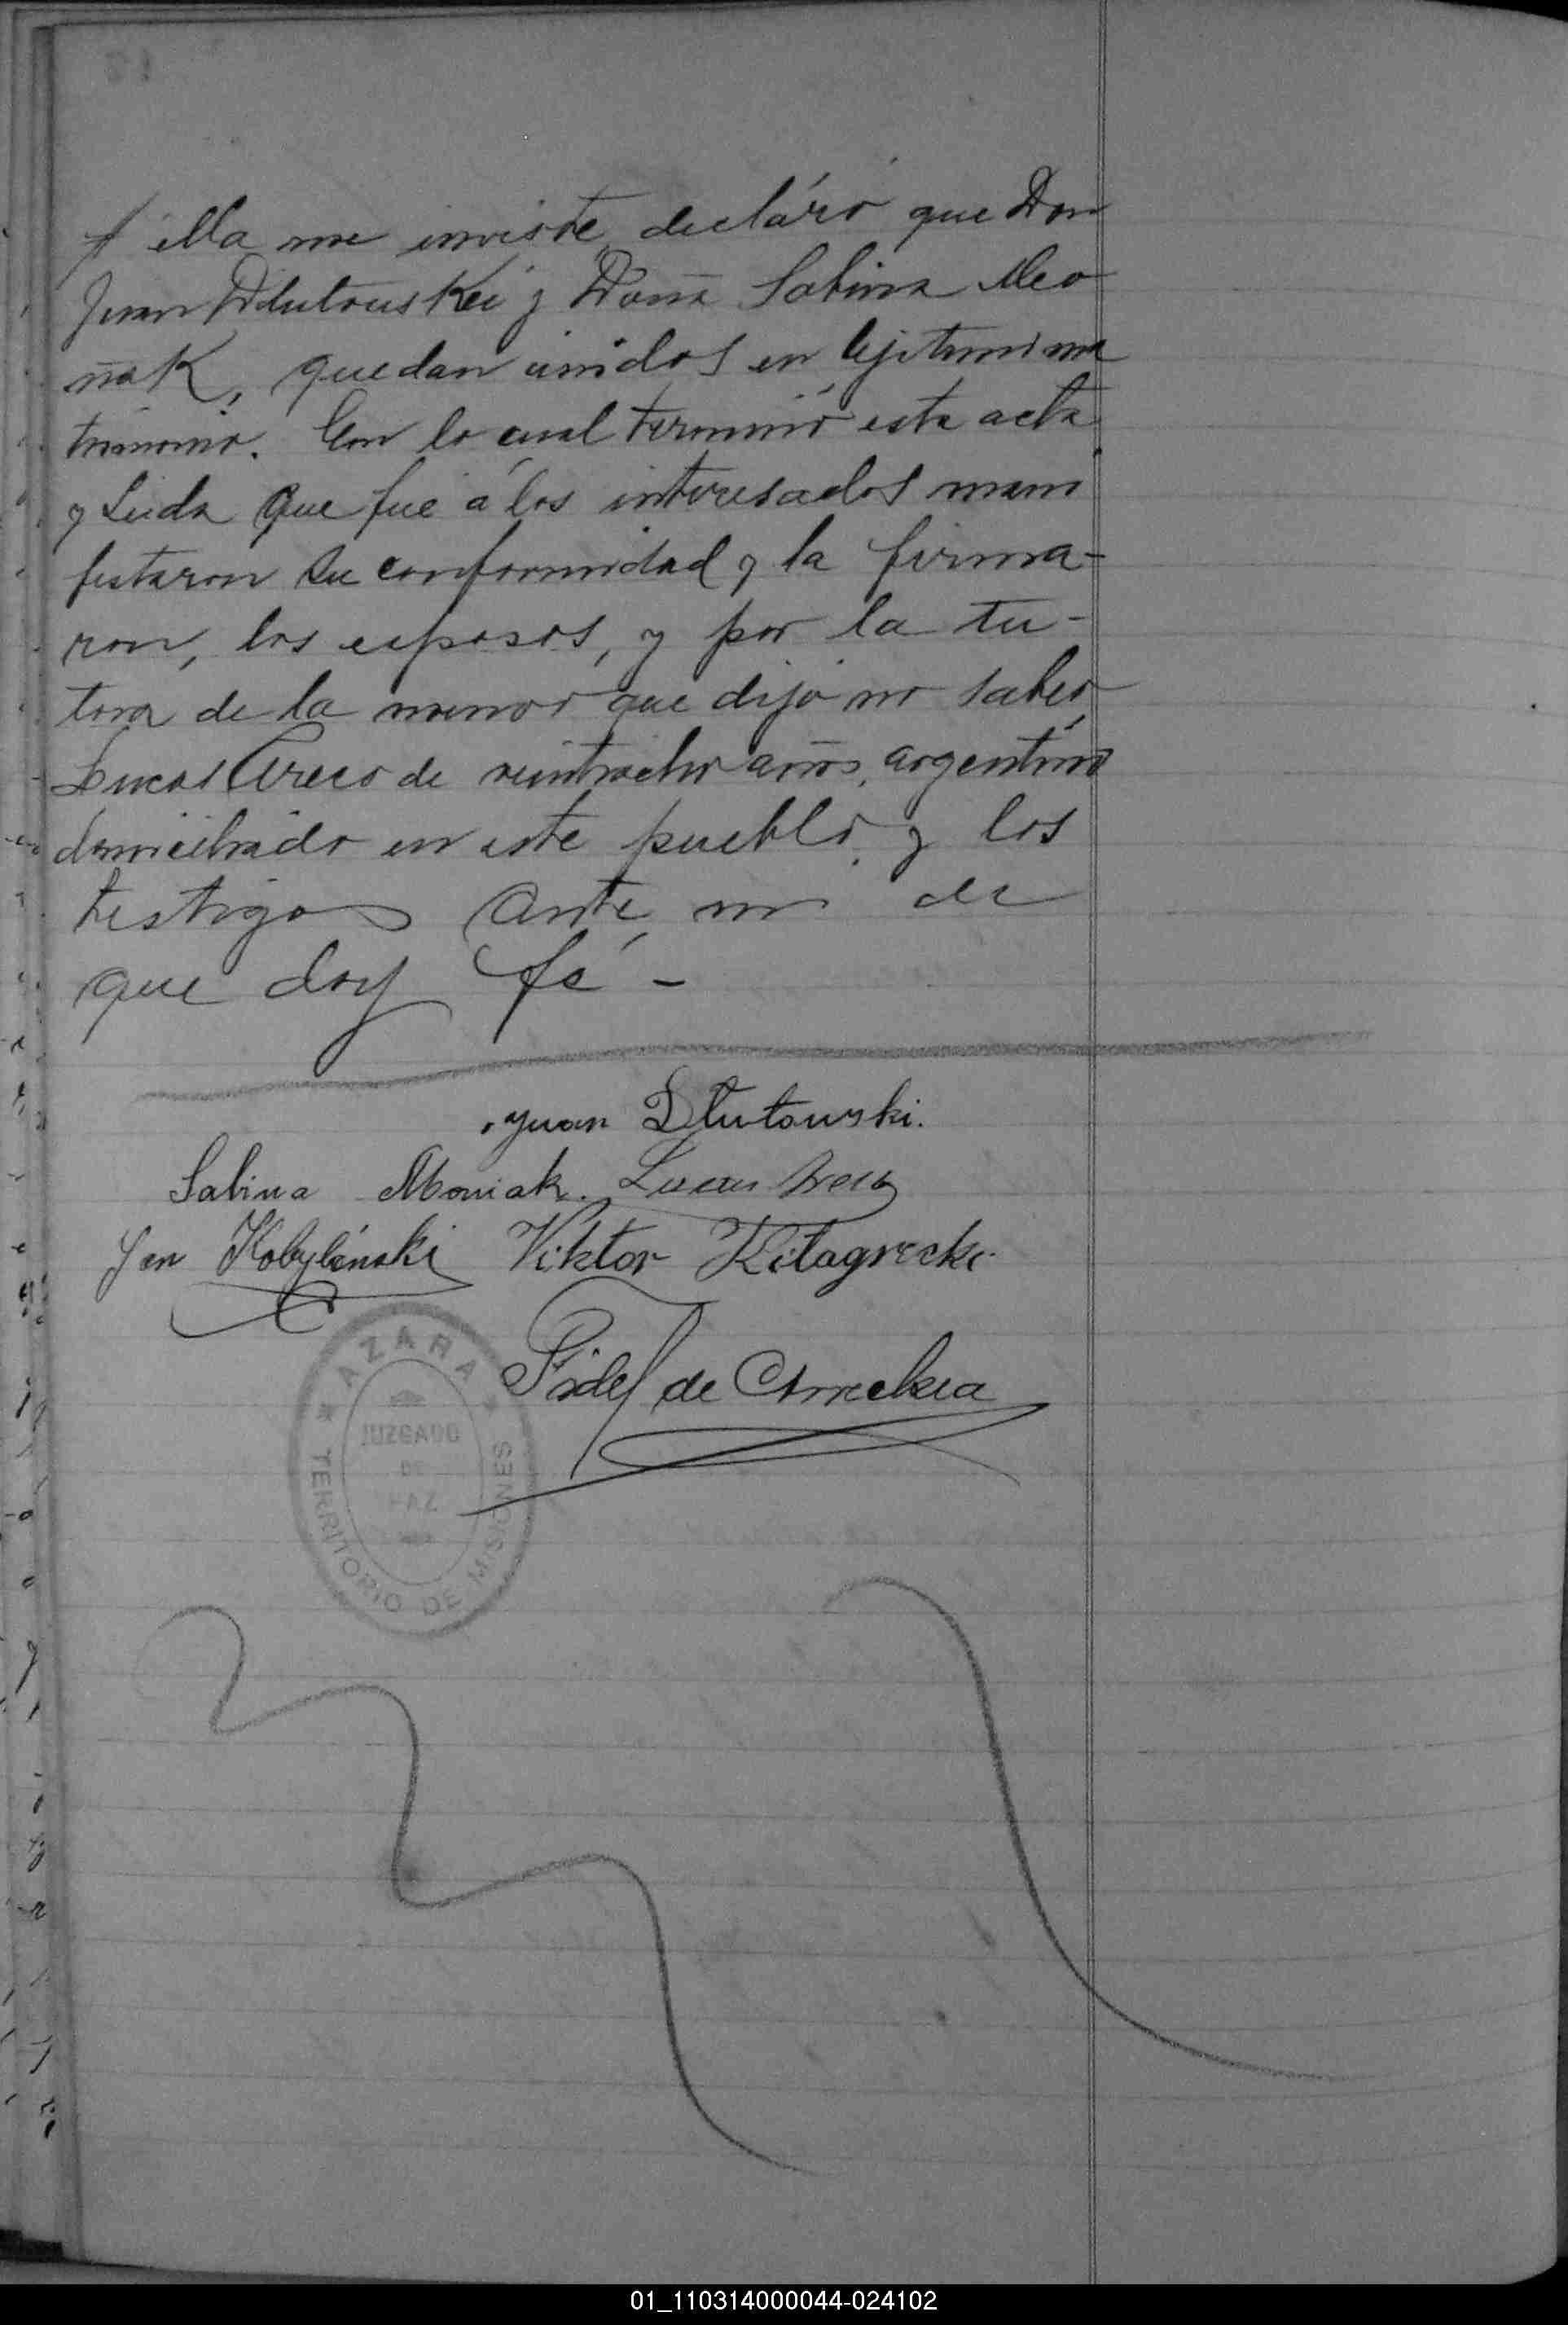 y ella me inviste, decláro que Don
Juan Dlutouskei y Doña Sabina Mo
ñaK, quedan unidos en lejitimo ma
trimonio. Con lo cual terminó esta acta
y Leida que fue á los interesados mani
festaron su conformidad y la firma-
ron, los esposos, y por la tu-
tora de la menor que dijo no saber,
Lucas Areco de veintiocho años, argentino
domiciliado en este pueblo, y los
testigos ante mi de
que doy fé -
Juan Dłutowski.
Sabina Moniak. Lucas Areco
Jan Kobylinski Viktor
Fidel de Arrechea
AZARA
JUZGADO
DE
PAZ
TERRITORIO DE MISIONES
01_110314000044-024102